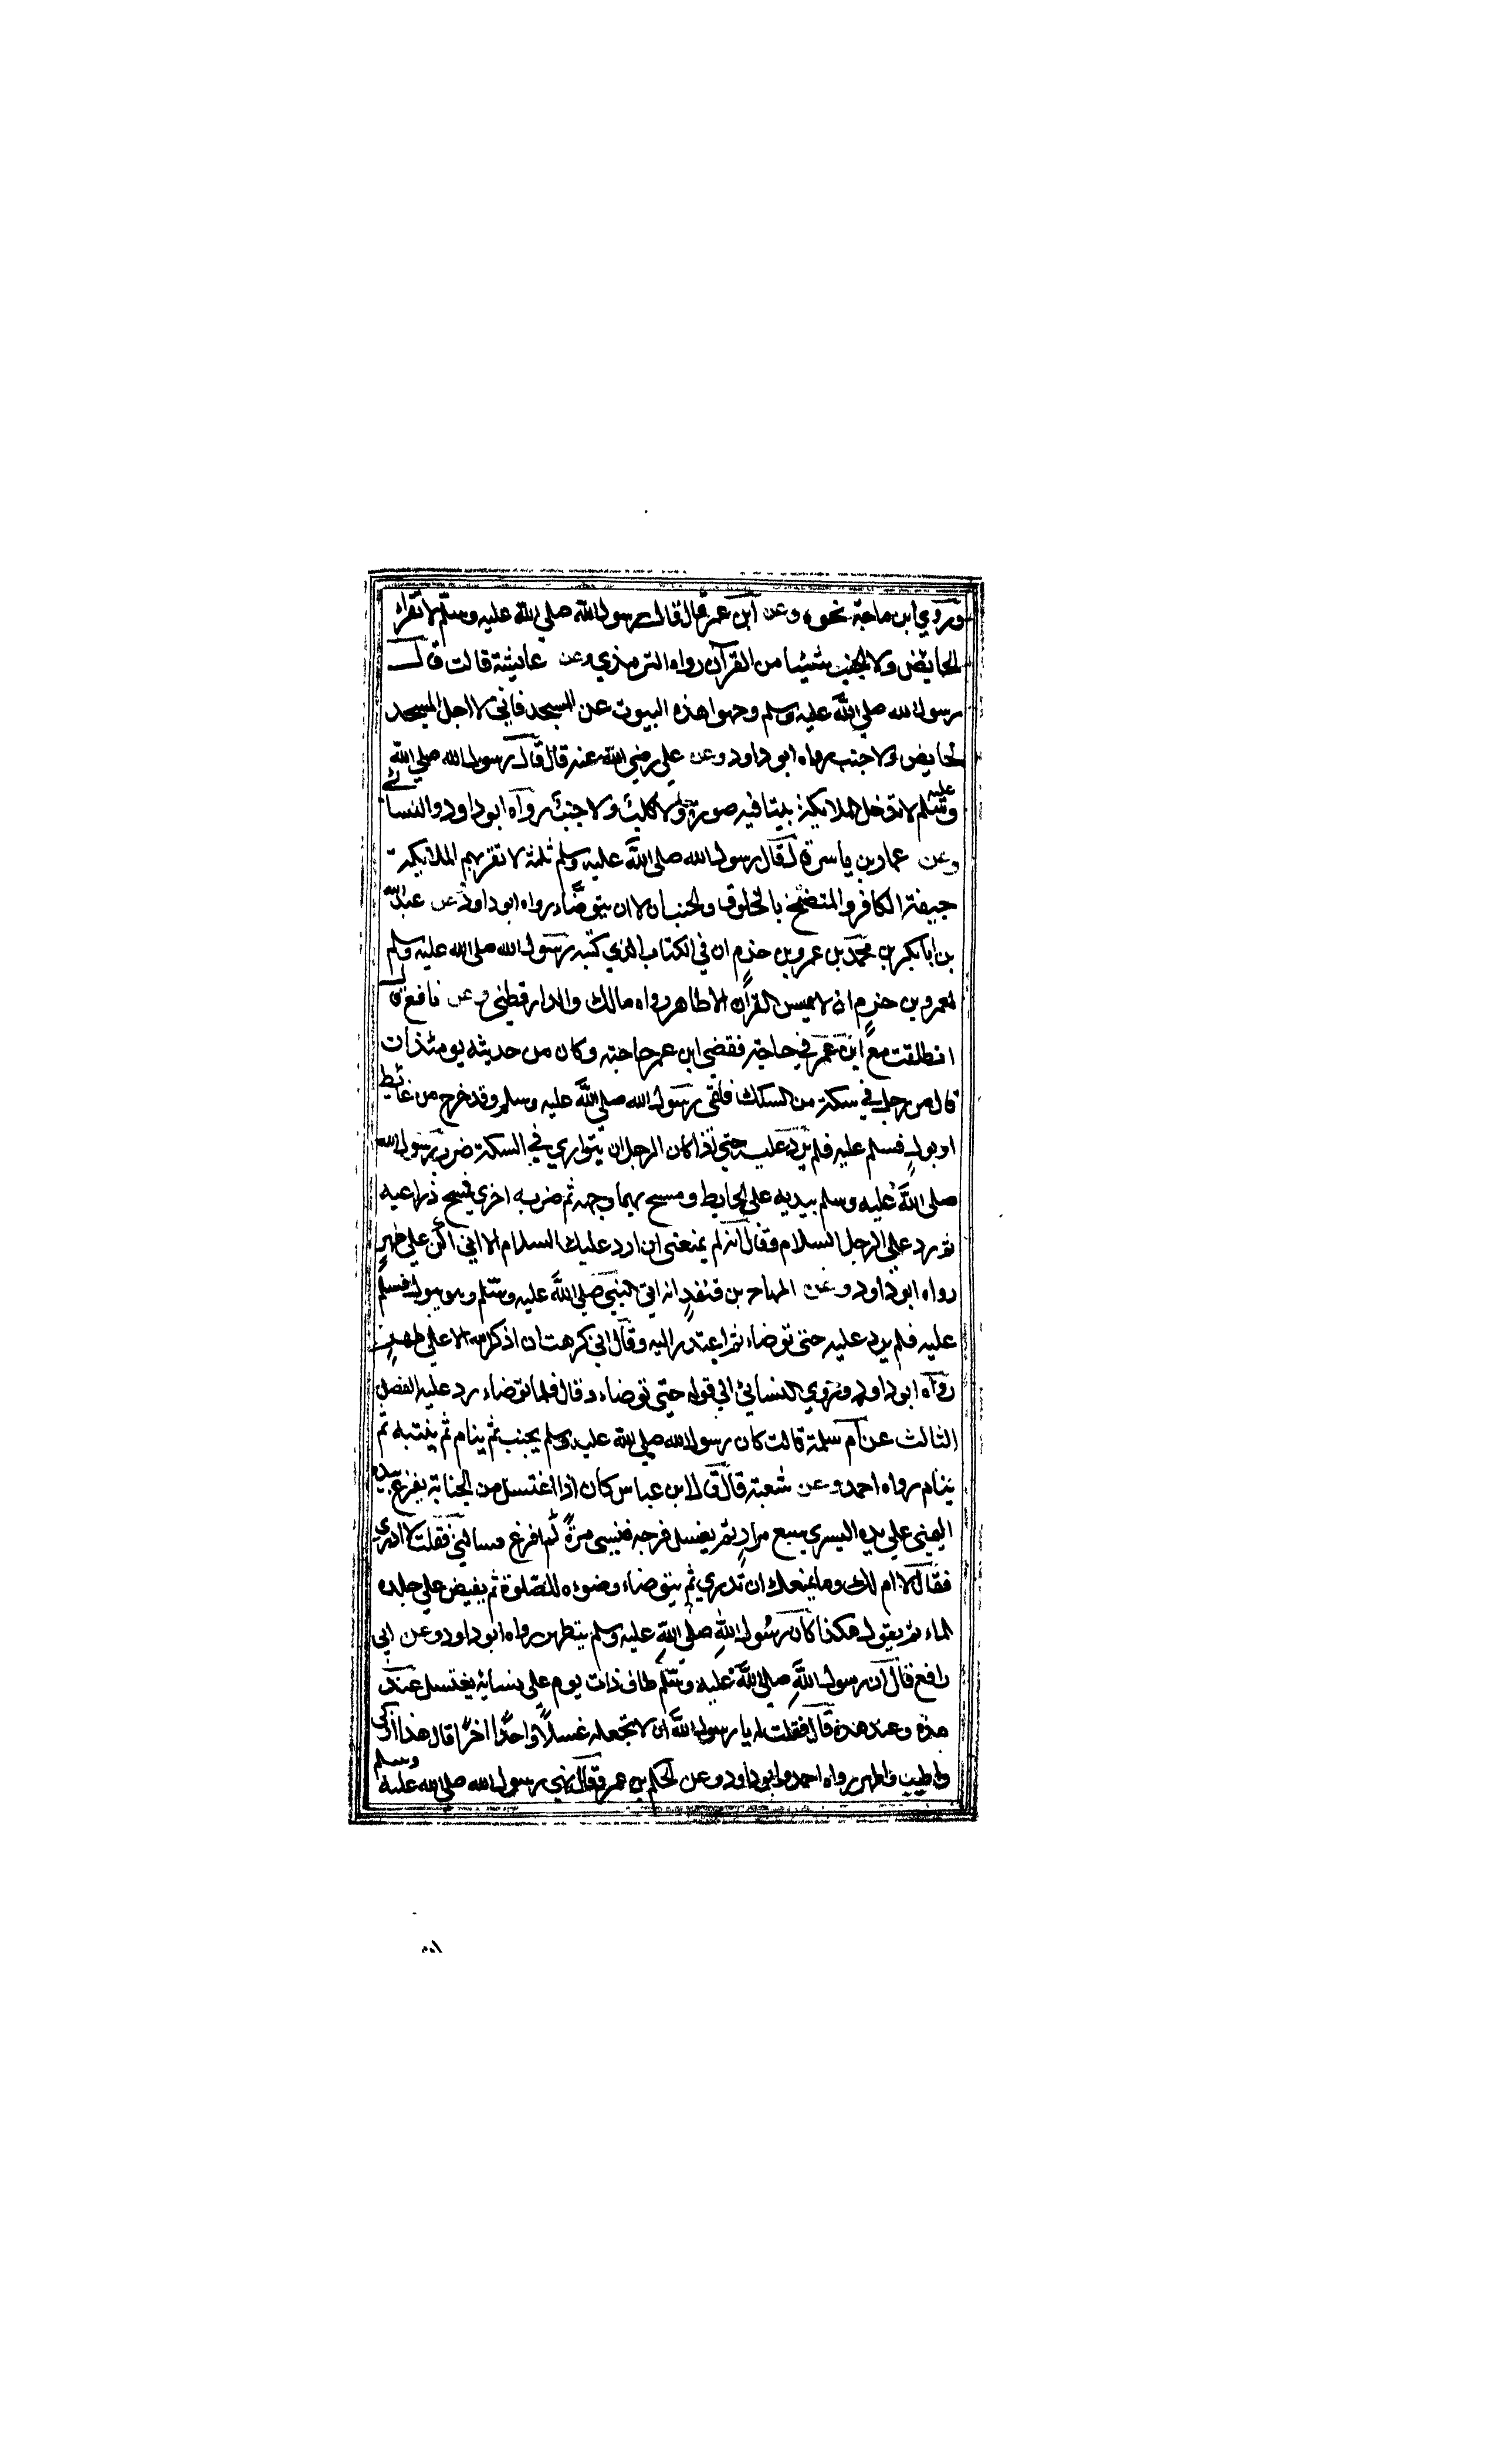 وروي ابن ماجة نحوه وعن ابن عمر قال قال رسول الله صلي الله عليه وسلم لا تقراء
الحايض ولا الجنب شيئا من القرآن رواه الترمذي وعن عايشة قالت قال
رسول الله صلي الله عليه وسلم وجهوا هذه البيوت عن المسجد فاني لا احل المسجد
لحايض ولا جنب رواه ابو داود وعن علي رضي الله عنه قال قال رسول الله صلي الله
عليه وسلم لا تدخل الملايكة بيتا فيه صورة ولا كلب ولا جنب رواه ابو داود والنسائے
وعن عمار بن ياسر قال قال رسول الله صلي الله عليه وسلم ثلثة لا تقربهم الملايكة
جيفة الكافر والمتضمخ بالخلوق والجنب ان لا ان يتوضاء رواه ابو داود وعن عبد الله
بن ابا بكر بن محمد بن عمرو بن حزم ان في الكتاب الذي كتبه رسول الله صلي الله عليه وسلم
لعمرو بن حزم ان لا يمس القرآن الا طاهر رواه مالك والدارقطني وعن نافع قال
انطلقت مع ابن عمر في حاجة فقضي ابن عمر حاجته وكان من حديثه يومئذ ان
قال مر رجل في سكة من السكك فلقي رسول الله صلي الله عليه وسلم وقد خرج من غائط
او بول فسلم عليه فلم يرد عليه حتي اذا كان الرجل ان يتواري في السكة ضرب رسول الله
صلي الله عليه وسلم بيديه علي الحايط ومسح بهما وجهه ثم ضرب اخري فمسح ذراعيه
ثم رد علي الرجل السلام وقال انه لم يمنعني ان ارد عليك السلام الا اني لم اكن علي طهر
رواه ابو داود وعن المهاجر بن قنفذ انه اتي النبي صلي الله عليه وسلم وهو يبول فسلم
عليه فلم يرد عليه حتي توضاء ثم اعتذر اليه وقال اني كرهت ان اذكر الله الا علي طهر
رواه ابو داود وروي النسائي الي قوله حتي توضاء وقال فلما توضاء رد عليه الفصل
الثالث عن ام سلمة قالت كان رسول الله صلي الله عليه وسلم يجنب ثم ينام ثم ينتبه ثم
ينام رواه احمد وعن شعبة قال قال ابن عباس كان اذا اغتسل من الجنابة يفرغ بيده
اليمني علي يده اليسري سبع مرار ثم يغسل فرجه فنسي مرة كم افرغ فسالني فقلت لا ادري
فقال لا ام لك وما يمنعك ان تدري ثم يتوضاء وضوءه للصلوة ثم يفيض علي جلده
الماء ثم يقول هكذا كان رسول الله صلي الله عليه وسلم يتطهر رواه ابو داود وعن ابي
رافع قال ان رسول الله صلي الله عليه وسلم طاف ذات يوم علي نسايه يغتسل عند
هذه وعند هذه قال فقلت له يا رسول الله ان لا تجعله غسلا واحدا اخرا قال هذا ازكي
واطيب واطهر رواه احمد وابو داود وعن الحكم بن عمرو قال نهي رسول الله صلي الله عليه وسلم